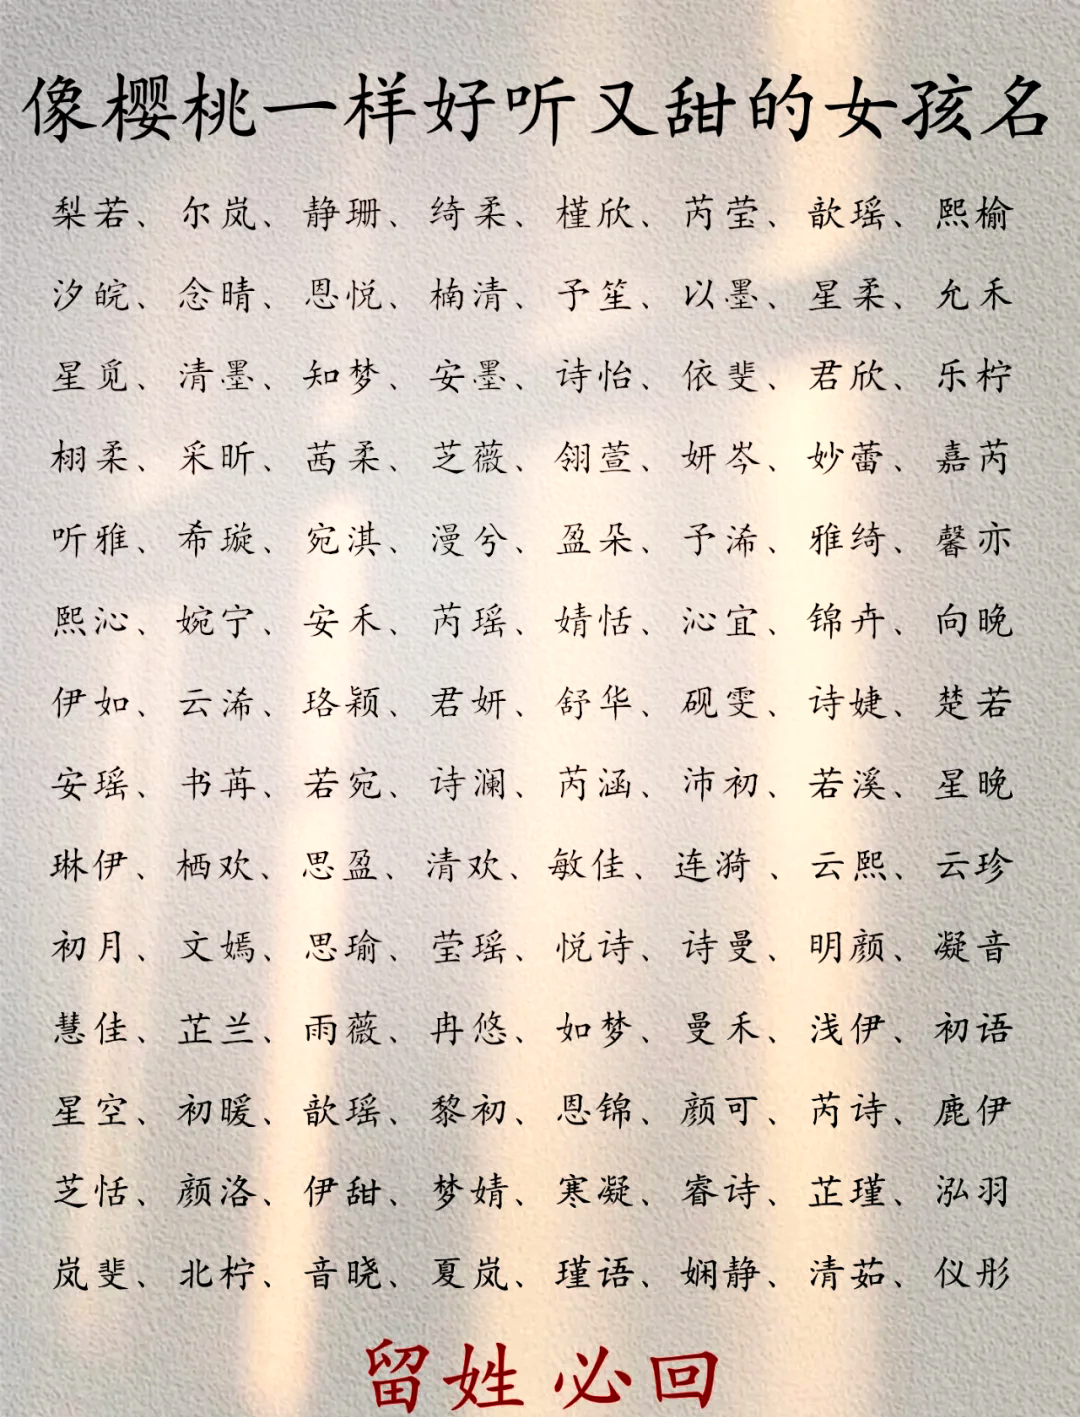 像樱桃一样好听又甜的女孩名
梨若、尔岚、静珊、绮柔、槿欣、芮莹、歆瑶、熙榆
汐皖、念晴、恩悦、楠清、予笙、以墨、星柔、允禾
星觅、清墨、知梦、安墨、诗怡、依斐、君欣、乐柠
栩柔、采昕、茜柔、芝薇、翎萱、妍岑、妙蕾、嘉芮
听雅、希璇、宛淇、漫兮、盈朵、予浠、雅绮、馨亦
熙沁、婉宁、安禾、芮瑶、婧恬、沁宜、锦卉、向晚
伊如、云浠、珞颖、君妍、舒华、砚雯、诗婕、楚若
安瑶、书苒、若宛、诗澜、芮涵、沛初、若溪、星晚
琳伊、栖欢、思盈、清欢、敏佳、连漪、云熙、云珍
初月、文嫣、思瑜、莹瑶、悦诗、诗曼、明颜、凝音
慧佳、芷兰、雨薇、冉悠、如梦、曼禾、浅伊、初语
星空、初暖、歆瑶、黎初、恩锦、颜可、芮诗、鹿伊
芝恬、颜洛、伊甜、梦婧、寒凝、睿诗、芷瑾、泓羽
岚斐、北柠、音晓、夏岚、瑾语、娴静、清茹、仪彤
留姓 必回